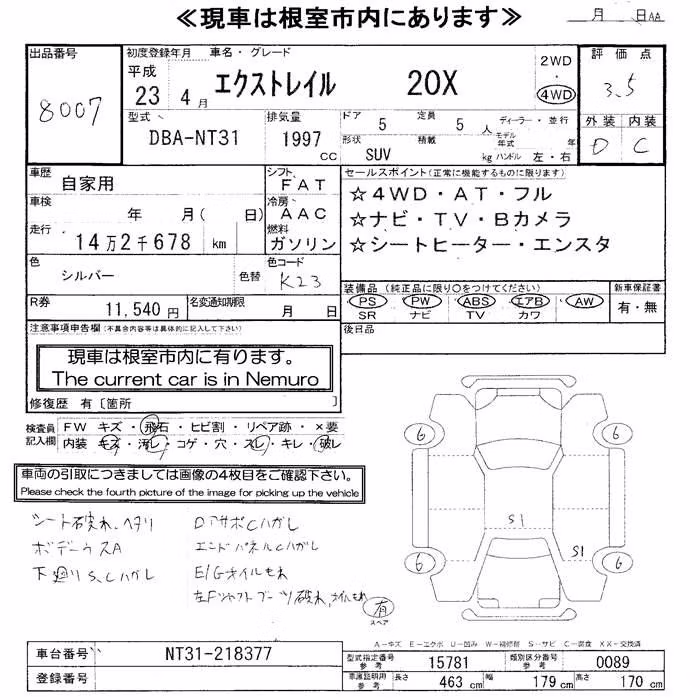 ≪現車は根室市内にあります≫
月 日AA
出品番号
8007
初度登録年月 車名・グレード
平成 23年 4月 エクストレイル 20X
2WD ・ 4WD
評価点
3.5
外装 内装
D C
型式
DBA-NT31
排気量
1997 cc
ドア 5 定員 5人 ディーラー・並行
形状 SUV 積載 kg モデル年式 年
ハンドル 左・右
車歴 自家用
シフト FAT
車検 年 月( 日)
冷房 AAC
走行 14万2千678 km
燃料 ガソリン
色 シルバー 色替
色コード K23
R券 11,540円
名変通知期限 月 日
セールスポイント(正常に機能するものに限ります)
☆4WD・AT・フル
☆ナビ・TV・Bカメラ
☆シートヒーター・エンスタ
装備品(純正品に限り○をつけてください) 新車保証書
PS PW ABS エアB AW 有・無
SR ナビ TV カワ
後日品
注意事項申告欄(不具合内容等は具体的に記入して下さい)
現車は根室市内に有ります。
The current car is in Nemuro
修復歴 有〔箇所
検査員記入欄
FW キズ・飛石・ヒビ割・リペア跡・×要
内装 キズ・汚レ・コゲ・穴・スレ・キレ・破レ
車両の引取につきましては画像の4枚目をご確認下さい。
Please check the fourth picture of the image for picking up the vehicle
シート破れ、ヘタリ
ボデーウスA
下廻りS、Cハガレ
ロアサポCハガレ
エンドパネルCハガレ
E/Gオイルもれ
左Fシャフトブーツ破れ、オイルもれ
6 6
S1 S1
6 6
有
スペア
A－キズ E－エクボ U－凹み W－補修跡 S－サビ C－腐食 XX－交換済
車台番号 NT31-218377
登録番号
型式指定番号 参考 15781
類別区分番号 参考 0089
車庫証明用 参考 長さ 463 cm 幅 179 cm 高さ 170 cm